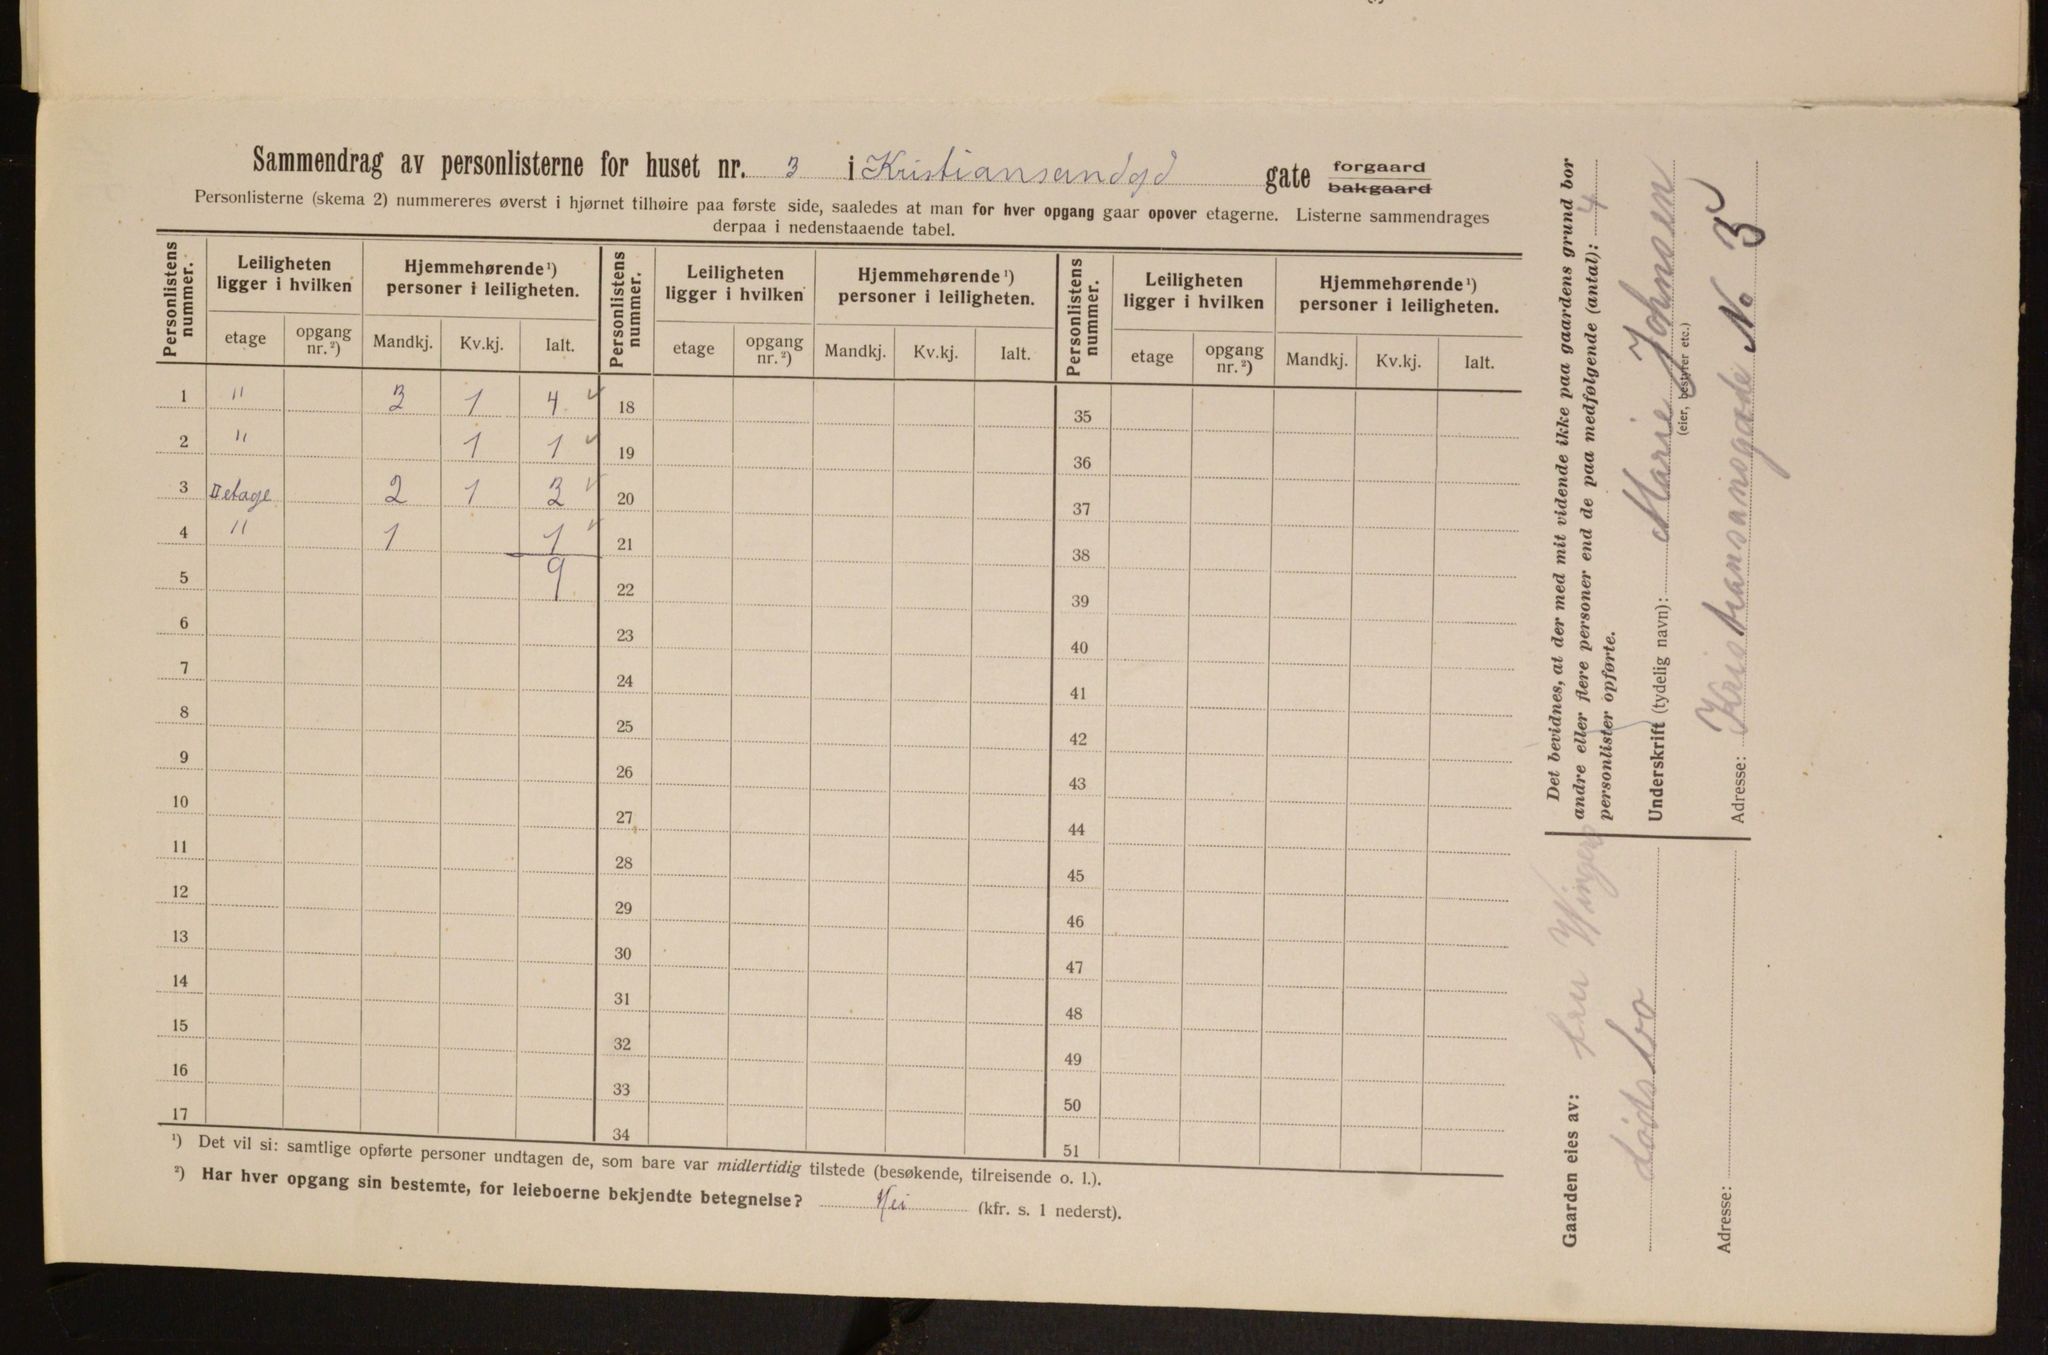 Sammendrag av personlisterne for huset nr. 3 i Kristiansandgd gate forgaard bakgaard
Personlisterne (skema 2) nummereres øverst i hjørnet tilhøire paa første side, saaledes at man for hver opgang gaar opover etagerne. Listerne sammendrages
derpaa i nedenstaaende tabel.
Personlistens nummer. Leiligheten ligger i hvilken Hjemmehørende¹) personer i leiligheten. Personlistens nummer. Leiligheten ligger i hvilken Hjemmehørende¹) personer i leiligheten. Personlistens nummer. Leiligheten ligger i hvilken Hjemmehørende¹) personer i leiligheten.
etage opgang nr.²) Mandkj. Kv.kj. Ialt. etage opgang nr.²) Mandkj. Kv.kj. Ialt. etage opgang nr.²) Mandkj. Kv.kj. Ialt.
1 " 3 1 4 ✓ 18 35
2 " 1 1 ✓ 19 36
3 II etage 2 1 3 ✓ 20 37
4 " 1 1 ✓ 21 38
5 9 22 39
6 23 40
7 24 41
8 25 42
9 26 43
10 27 44
11 28 45
12 29 46
13 30 47
14 31 48
15 32 49
16 33 50
17 34 51
¹) Det vil si: samtlige opførte personer undtagen de, som bare var midlertidig tilstede (besøkende, tilreisende o. l.).
²) Har hver opgang sin bestemte, for leieboerne bekjendte betegnelse? Nei (kfr. s. 1 nederst).
Det bevidnes, at der med mit vidende ikke paa gaardens grund bor
andre eller flere personer end de paa medfølgende (antal): 4
personlister opførte.
Underskrift (tydelig navn): Marie Johnsen
(eier, bestyrer etc.)
Adresse: Kristiansansgade No 3
Gaarden eies av: fru Wingers
dødsbo
Adresse: